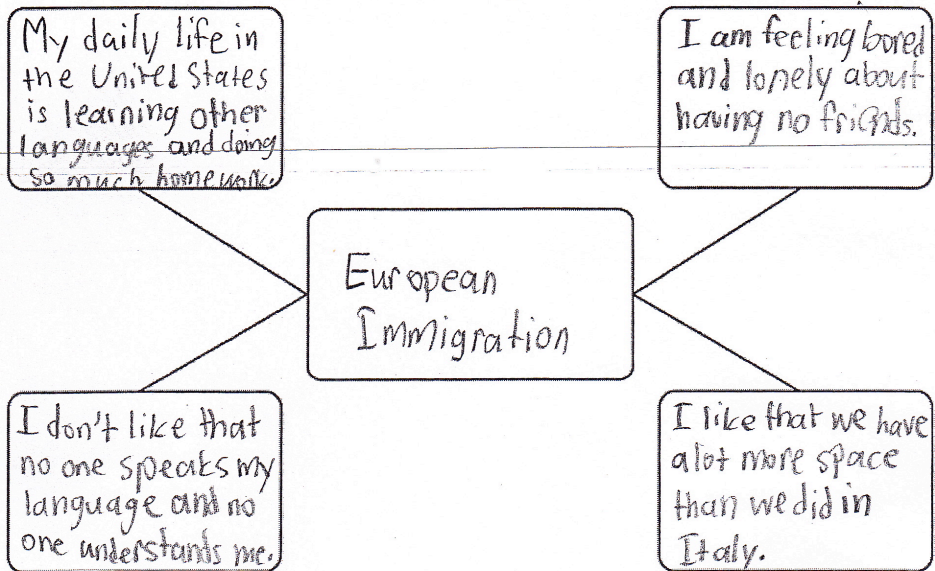 My daily life in
the United States
is learning other
languages and doing
so much homework.
I am feeling bored
and lonely about
having no friends.
European
Immigration
I don't like that
no one speaks my
language and no
one understands me.
I like that we have
alot more space
than we did in
Italy.